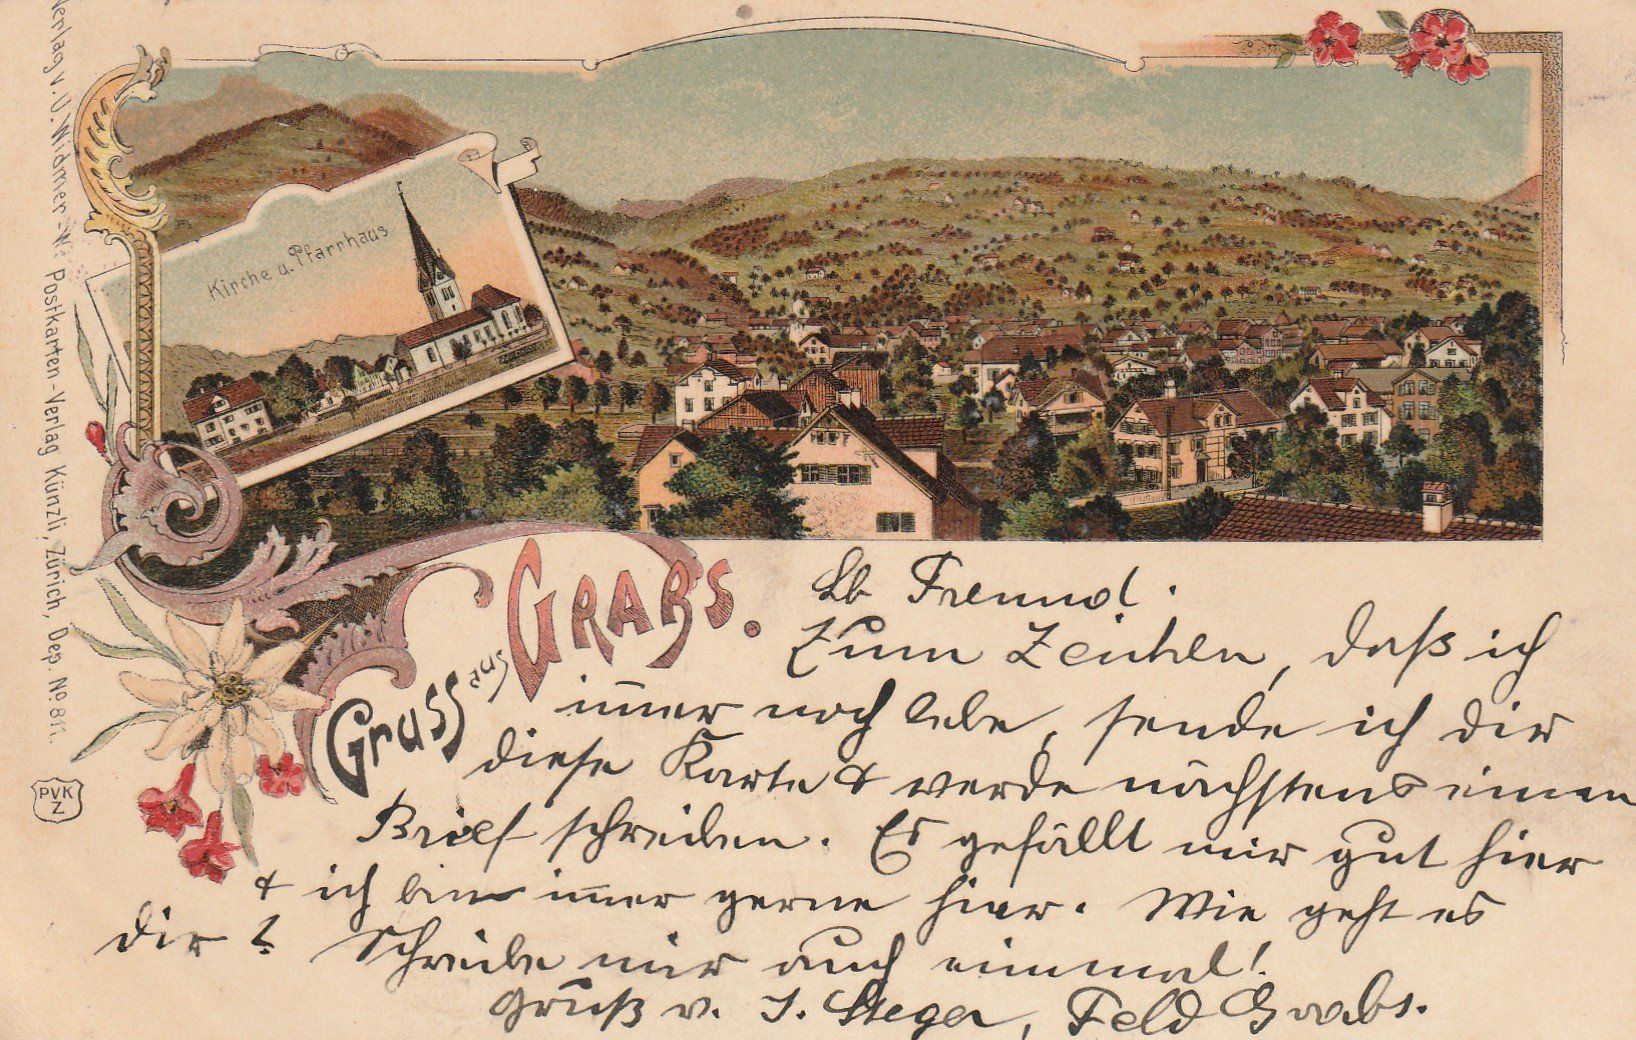 Verlag v. U. Widmer-W. Postkarten-Verlag Künzli, Zürich, Dep. No. 811.
Kirche u. Pfarrhaus
Gruss aus GRABS.
PVK
Z
Lb Freund!
Zum Zeichen, daß ich
immer noch lebe, sende ich dir
diese Karte & werde nächstens einen
Brief schreiben. Es gefällt mir gut hier
& ich bin immer gerne hier. Wie geht es
dir? Schreibe mir auch einmal!
Gruß v. J. Steger, Feld Grabs.